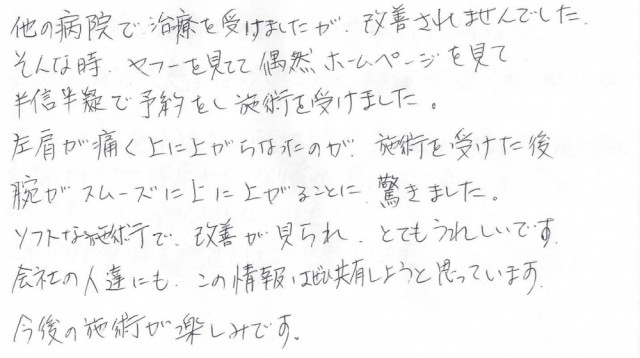 他の病院で治療を受けましたが、改善されませんでした。
そんな時、ヤフーを見てて偶然ホームページを見て
半信半疑で予約をし施術を受けました。
左肩が痛く上に上がらなたのが、施術を受けた後
腕がスムーズに上に上がることに驚きました。
ソフトな施術で、改善が見られ、とてもうれしいです。
会社の人達にも、この情報はぜひ共有しようと思っています。
今後の施術が楽しみです。